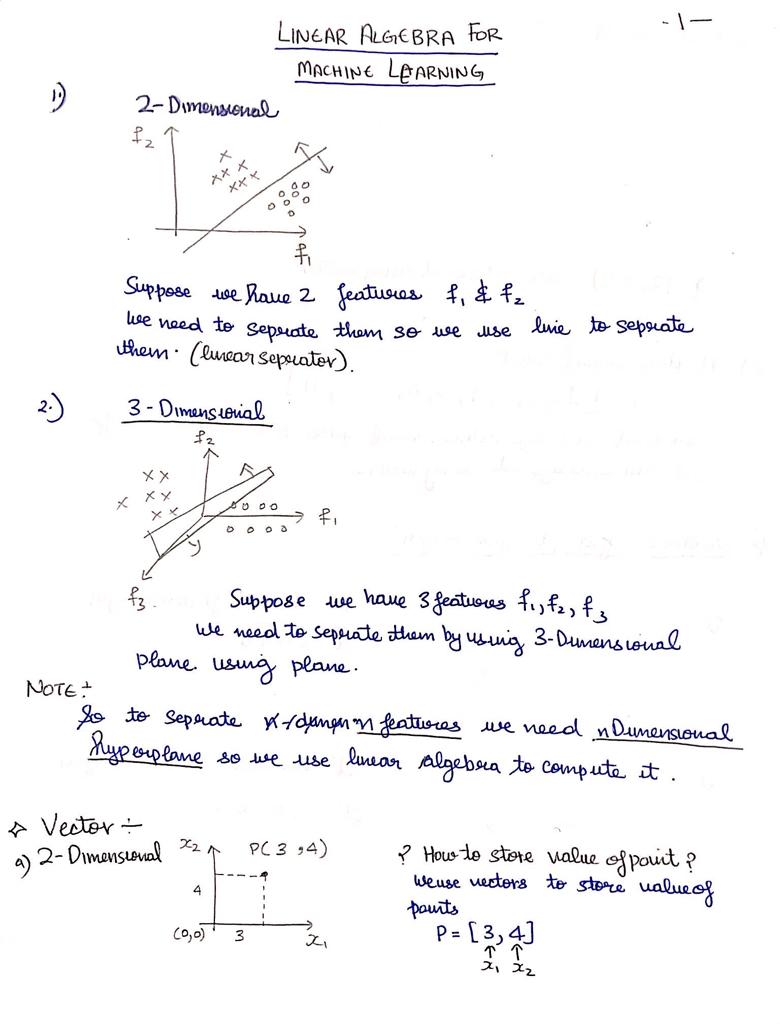 LINEAR ALGEBRA FOR
-1-
MACHINE LEARNING
1.)
2-Dimensional
f₂
f₁
Suppose we have 2 features f₁ & f₂
We need to seperate them so we use line to seperate
them. (linear seperator).
2.)
3-Dimensional
f₂
f₁
f₃
Suppose we have 3 features f₁, f₂, f₃
We need to seprate them by using 3-Dimensional
plane using plane.
NOTE:-
So to seperate n features we need n Dimensional
hyperplane so we use linear algebra to compute it.
Vector :-
a) 2-Dimensional
x₂
P(3,4)
4
(0,0)
3
x₁
? How to store value of point?
We use vectors to store value of
points
P = [3, 4]
↑ ↑
x₁ x₂